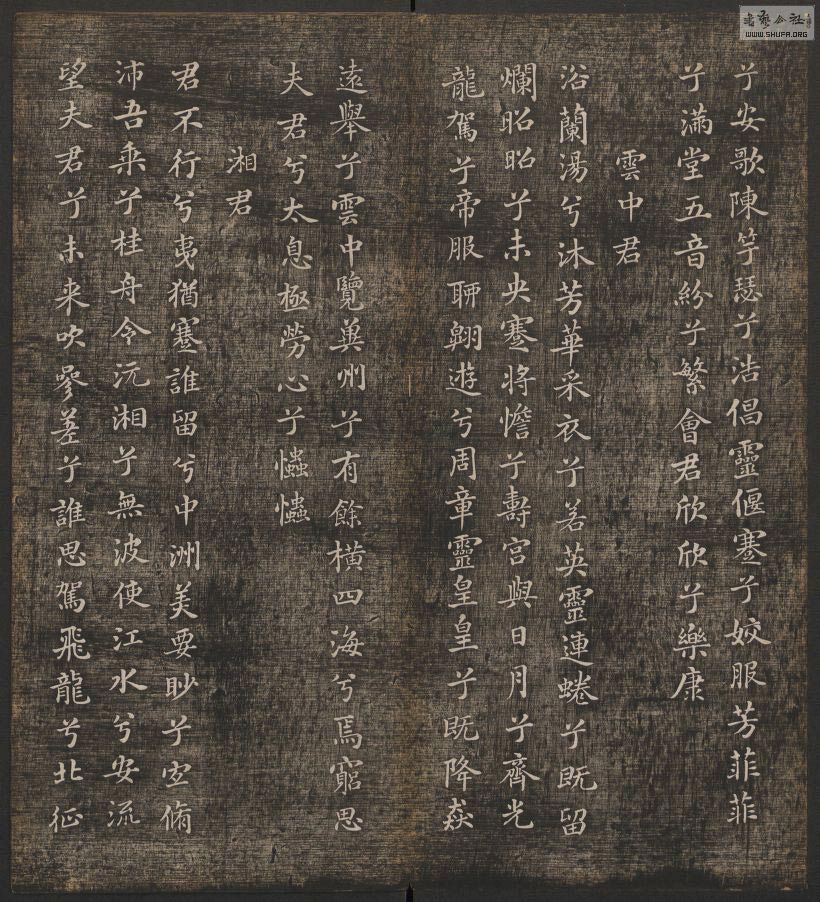 兮安歌陳竽瑟兮浩倡靈偃蹇兮姣服芳菲菲
兮滿堂五音紛兮繁會君欣欣兮樂康
雲中君
浴蘭湯兮沐芳華采衣兮若英靈連蜷兮既留
爛昭昭兮未央蹇將憺兮壽宮與日月兮齊光
龍駕兮帝服聊翱遊兮周章靈皇皇兮既降猋
遠舉兮雲中覽冀州兮有餘橫四海兮焉窮思
夫君兮太息極勞心兮爞爞
湘君
君不行兮夷猶蹇誰留兮中洲美要眇兮宜脩
沛吾乘兮桂舟令沅湘兮無波使江水兮安流
望夫君兮未来吹參差兮誰思駕飛龍兮北征
WWW.SHUFA.ORG